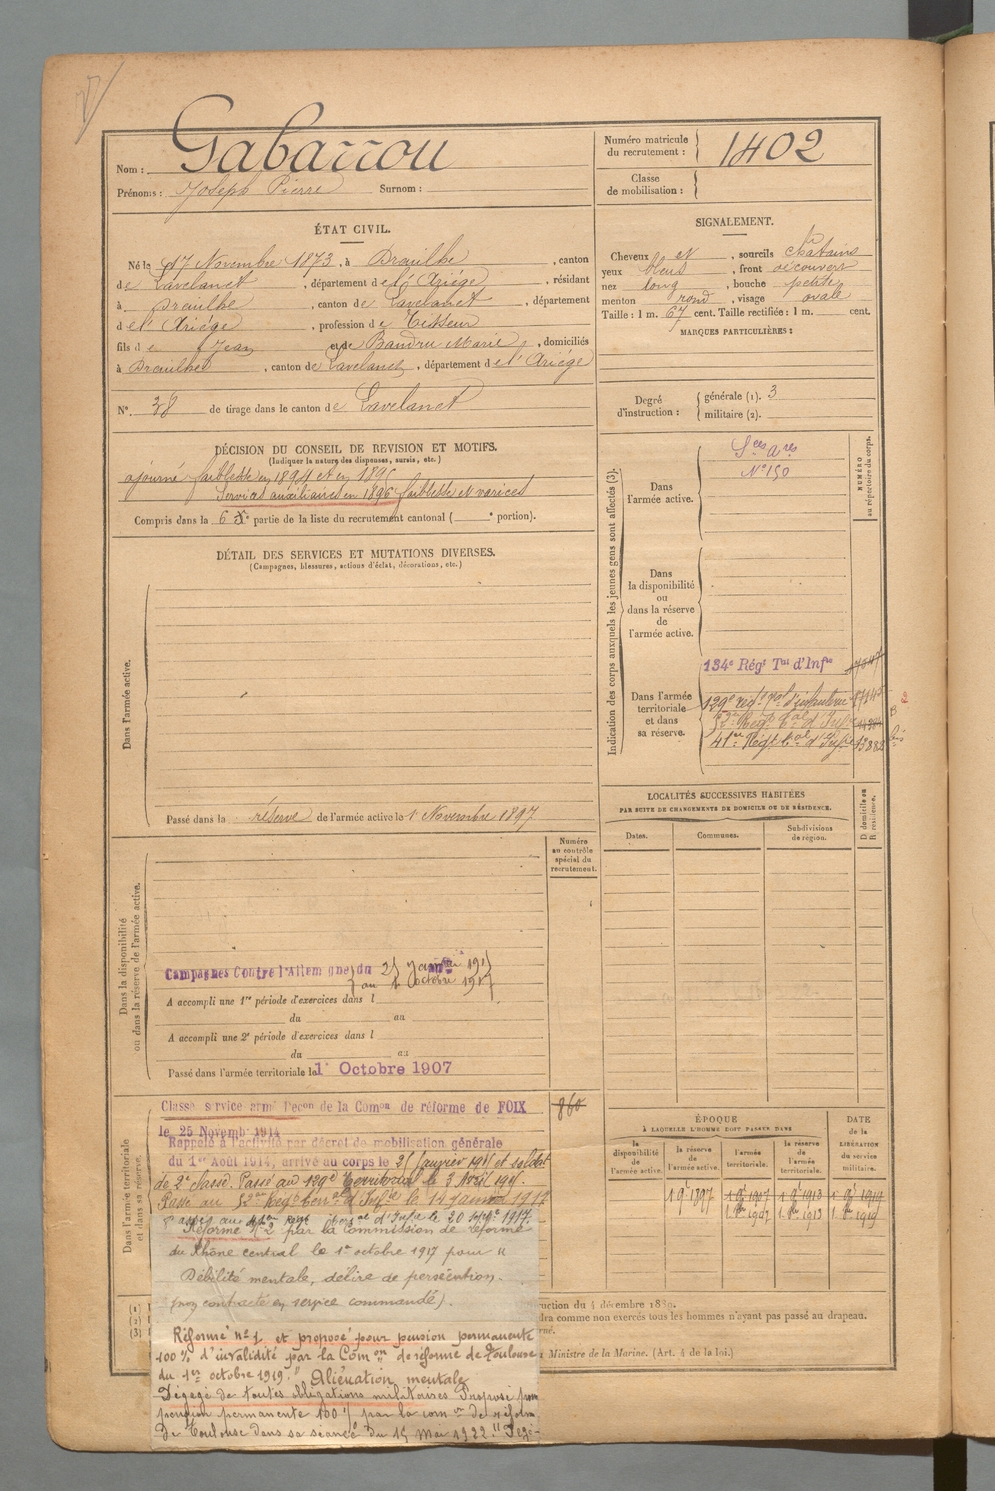 Nom : Gabarrou
Prénoms : Joseph Pierre Surnom :
Numéro matricule du recrutement : 1402
Classe de mobilisation :
ÉTAT CIVIL.
Né le 17 Novembre 1873, à Dreuilhe, canton
de Lavelanet, département de l'Ariége, résidant
à Dreuilhe, canton de Lavelanet, département
de l'Ariége, profession de Tisseur
fils de Jean et de Baudru Marie, domiciliés
à Dreuilhe, canton de Lavelanet, département de l'Ariége
N° 38 de tirage dans le canton de Lavelanet
SIGNALEMENT.
Cheveux et, sourcils châtains
yeux bleus, front découvert
nez long, bouche petite
menton rond, visage ovale
Taille : 1 m. 67 cent. Taille rectifiée : 1 m. cent.
MARQUES PARTICULIÈRES :
Degré d'instruction : générale (1). 3
militaire (2).
DÉCISION DU CONSEIL DE REVISION ET MOTIFS.
(Indiquer la nature des dispenses, sursis, etc.)
ajourné faiblesse en 1894 et en 1895
Services auxiliaires en 1896 faiblesse et varices
Compris dans la 6e partie de la liste du recrutement cantonal ( e portion).
DÉTAIL DES SERVICES ET MUTATIONS DIVERSES.
(Campagnes, blessures, actions d'éclat, décorations, etc.)
Dans l'armée active.
Passé dans la réserve de l'armée active le 1er Novembre 1897
Indication des corps auxquels les jeunes gens sont affectés (3).
NUMÉRO au répertoire du corps.
Dans l'armée active.
Sces Ares
N° 150
Dans la disponibilité ou dans la réserve de l'armée active.
Dans l'armée territoriale et dans sa réserve.
134e Régt Tal d'Infie
129e régt Tal d'infanterie
52e Régt Tal d'Infie
41e Régt Tal d'Infie
LOCALITÉS SUCCESSIVES HABITÉES
PAR SUITE DE CHANGEMENTS DE DOMICILE OU DE RÉSIDENCE.
D domicile ou R résidence.
Dates. Communes. Subdivisions de région.
Dans la disponibilité ou dans la réserve de l'armée active.
Numéro au contrôle spécial du recrutement.
Campagnes Contre l'Allemagne du 25 Janvier 1915
au 1 Octobre 1917
A accompli une 1re période d'exercices dans l
du au
A accompli une 2e période d'exercices dans l
du au
Passé dans l'armée territoriale le 1er Octobre 1907
Dans l'armée territoriale et dans sa réserve.
Classé service armé Décon de la Comon de réforme de FOIX
860
le 25 Novemb 1914
Rappelé à l'activité par décret de mobilisation générale
du 1er Août 1914, arrivé au corps le 25 janvier 1915 et soldat
de 2e classe. Passé au 129e Territorial le 3 Avril 1915.
Passé au 52e Régt Terral d'Infie le 14 Janv 1917
Passé au 41e Régt Terral d'Infie le 20 Septbre 1917.
Réformé N° 2 par la Commission de réforme
du Rhône central le 1er octobre 1917 pour "
Débilité mentale, délire de persécution.
(non contracté en service commandé).
Réformé n° 1 et proposé pour pension permanente
100 % d'invalidité par la Comon de réforme de Toulouse
du 1er octobre 1919. "Aliénation mentale
Dégagé de toutes obligations militaires. Proposé pour
pension permanente 100 % par la com on de réforme
de Toulouse dans sa séance du 15 Mai 1922.
ÉPOQUE
À LAQUELLE L'HOMME DOIT PASSER DANS
DATE de la LIBÉRATION du service militaire.
la disponibilité de l'armée active. la réserve de l'armée active. l'armée territoriale. la réserve de l'armée territoriale.
1 9bre 1897 1 9bre 1907 1 9bre 1913 1 9bre 1919
1 8bre 1907 1 8bre 1913 1 8bre 1919
(1)
(2)
(3)
ruction du 4 décembre 1889.
dra comme non exercés tous les hommes n'ayant pas passé au drapeau.
Ministre de la Marine. (Art. 4 de la loi.)